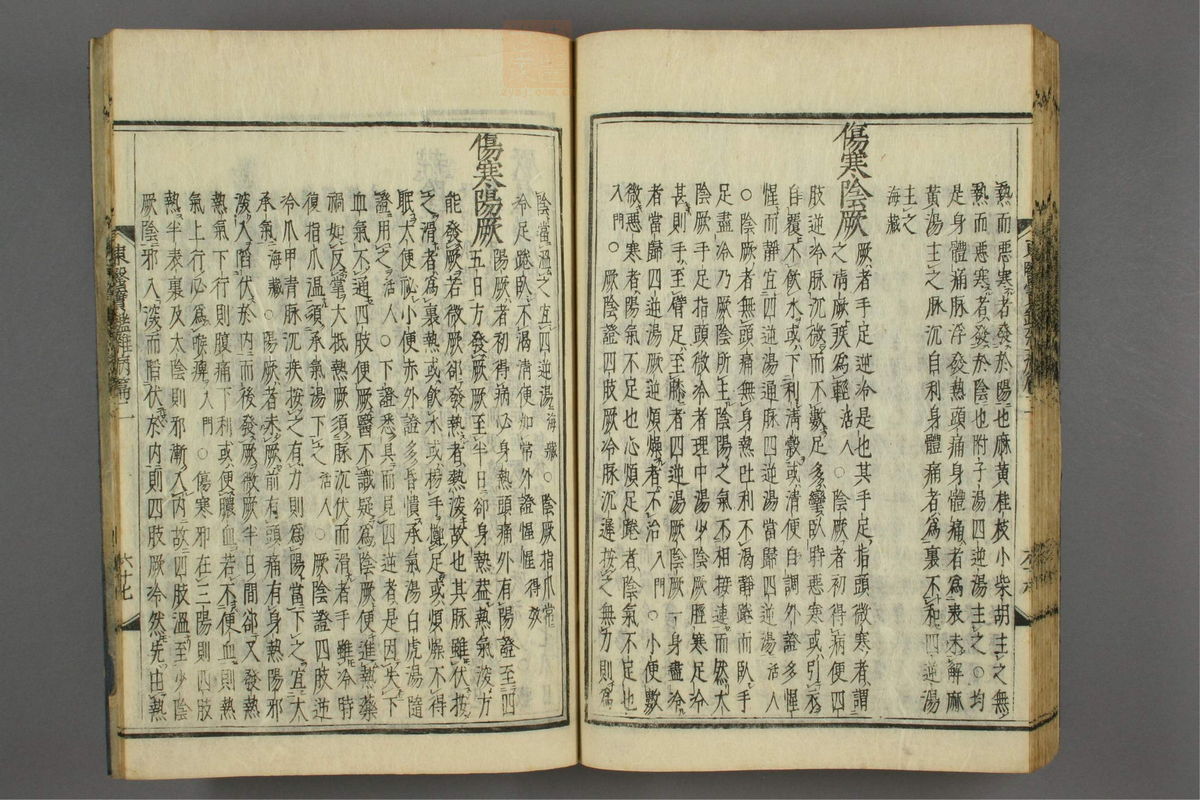 熱而悪寒者發於陽也麻黃桂枝小柴胡主之無
熱而悪寒者發於陰也附子湯四逆湯主之○均
是身體痛脉浮發熱頭痛身體痛者為表未解麻
黃湯主之脉沉自利身體痛者為裏不和四逆湯
主之海藏
傷寒陰厥
厥者手足逆冷是也其手足指頭微寒者謂
之清厥疾為輕活人○陰厥者初得病便四
肢逆冷脉沉微而不數足多攣臥時悪寒或引衣
自覆不飲水或下利清穀或清便自調外證多惺
惺而靜宜四逆湯通脉四逆湯當歸四逆湯活人
○陰厥者無頭痛無身熱吐利不渴靜踡而臥手
足盡冷乃厥陰所主陰陽之氣不相接連而然太
陰厥手足指頭微冷者理中湯少陰厥脛寒足冷
甚則手至臂足至膝者四逆湯厥陰厥一身盡冷
者當歸四逆湯厥逆煩燥者不治入門○小便數
微悪寒者陽氣不足也心煩足踡者陰氣不足也
入門○厥陰證四肢厥冷脉沉遲按之無力則為
陰當温之宜四逆湯海藏○陰厥指爪常
冷足踡臥不渴清便如常外證惺惺得效
傷寒陽厥
陽厥者初得病必身熱頭痛外有陽證至四
五日方發厥厥至半日却身熱盖熱氣深方
能發厥若微厥却發熱者熱深故也其脉雖伏按
之滑者為裏熱或飲水或揚手擲足或煩燥不得
眠大便秘小便赤外證多昏憒承氣湯白虎湯隨
證用之活人○下證悉具而見四逆者是因失下
血氣不通四肢便厥醫不識疑為陰厥便進熱藥
禍如反掌大抵熱厥須脉沉伏而滑者手雖冷時
復指爪温須承氣湯下之活人○厥陰證四肢逆
冷爪甲青脉沉疾按之有力則為陽當下之宜大
承氣海藏○陽厥者未厥前有頭痛有身熱陽邪
深入陷伏於內而後發厥微厥半日間却又發熱
熱氣下行則腹痛下利或便膿血若不便血則熱
氣上行必為喉痺入門○傷寒邪在三陽則四肢
熱半表裏及太陰則邪漸入內故四肢温至少陰
厥陰邪入深而陷伏於內則四肢厥冷然先由熱
東醫寶鑑雜病篇二
六廿七